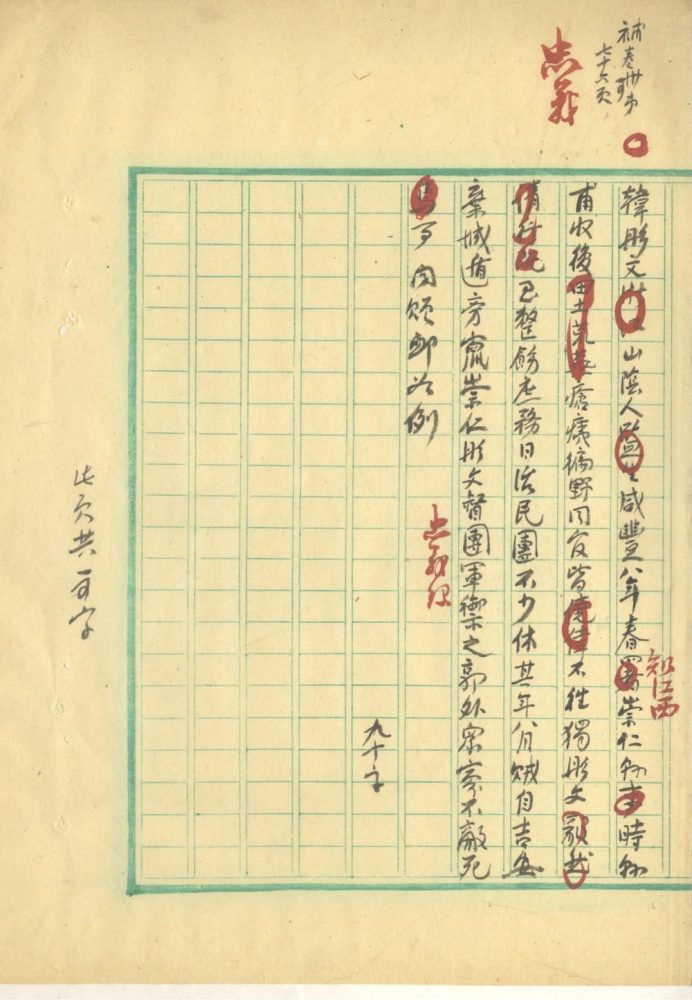 補卷卅第
七十六頁
忠義
韓彤文山陰人監生咸豐八年春署崇仁知縣事時縣
知江西
甫收後田土荒蕪瘡痍徧野同官皆不往獨彤文毅然
至整飭庶務日治民團不少休其年八月賊自吉安
棄城遁旁竄崇仁彤文督團軍禦之郭外眾寡不敵死
焉事聞賜卹如例
忠義伝
九十字
此頁共一百字